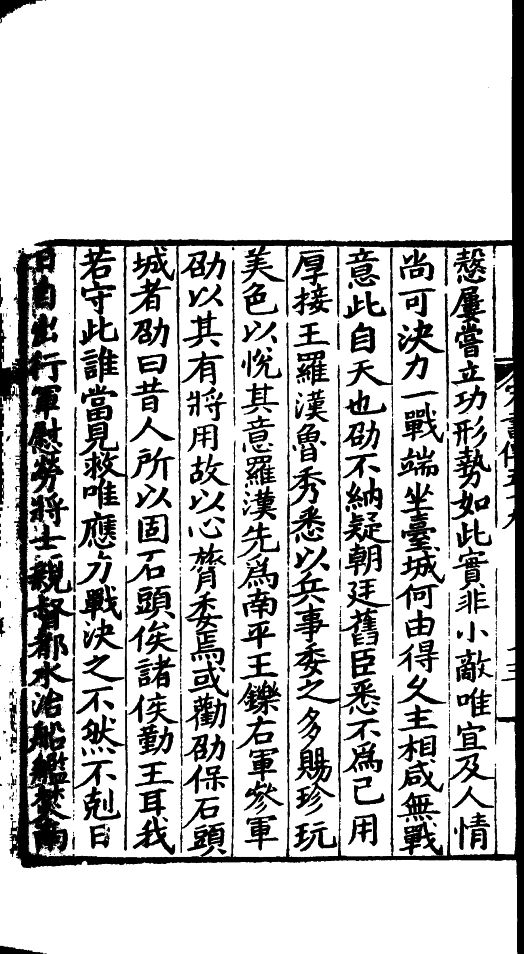 愨屢嘗立功形勢如此實非小敵唯宜及人情
尚可決力一戰端坐臺城何由得久主相咸無戰
意此自天也劭不納疑朝廷舊臣悉不爲己用
厚接王羅漢魯秀悉以兵事委之多賜珍玩
美色以悅其意羅漢先爲南平王鑠右軍參軍
劭以其有將用故以心膂委焉或勸劭保石頭
城者劭曰昔人所以固石頭俟諸侯勤王耳我
若守此誰當見救唯應力戰決之不然不剋日
日自出行軍慰勞將士親督都水治船艦焚南